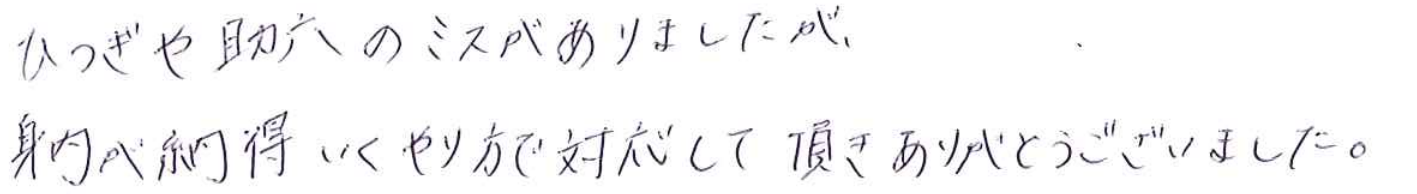 ひつぎや助六のミスがありましたが、
身内が納得いくやり方で対応して頂きありがとうございました。